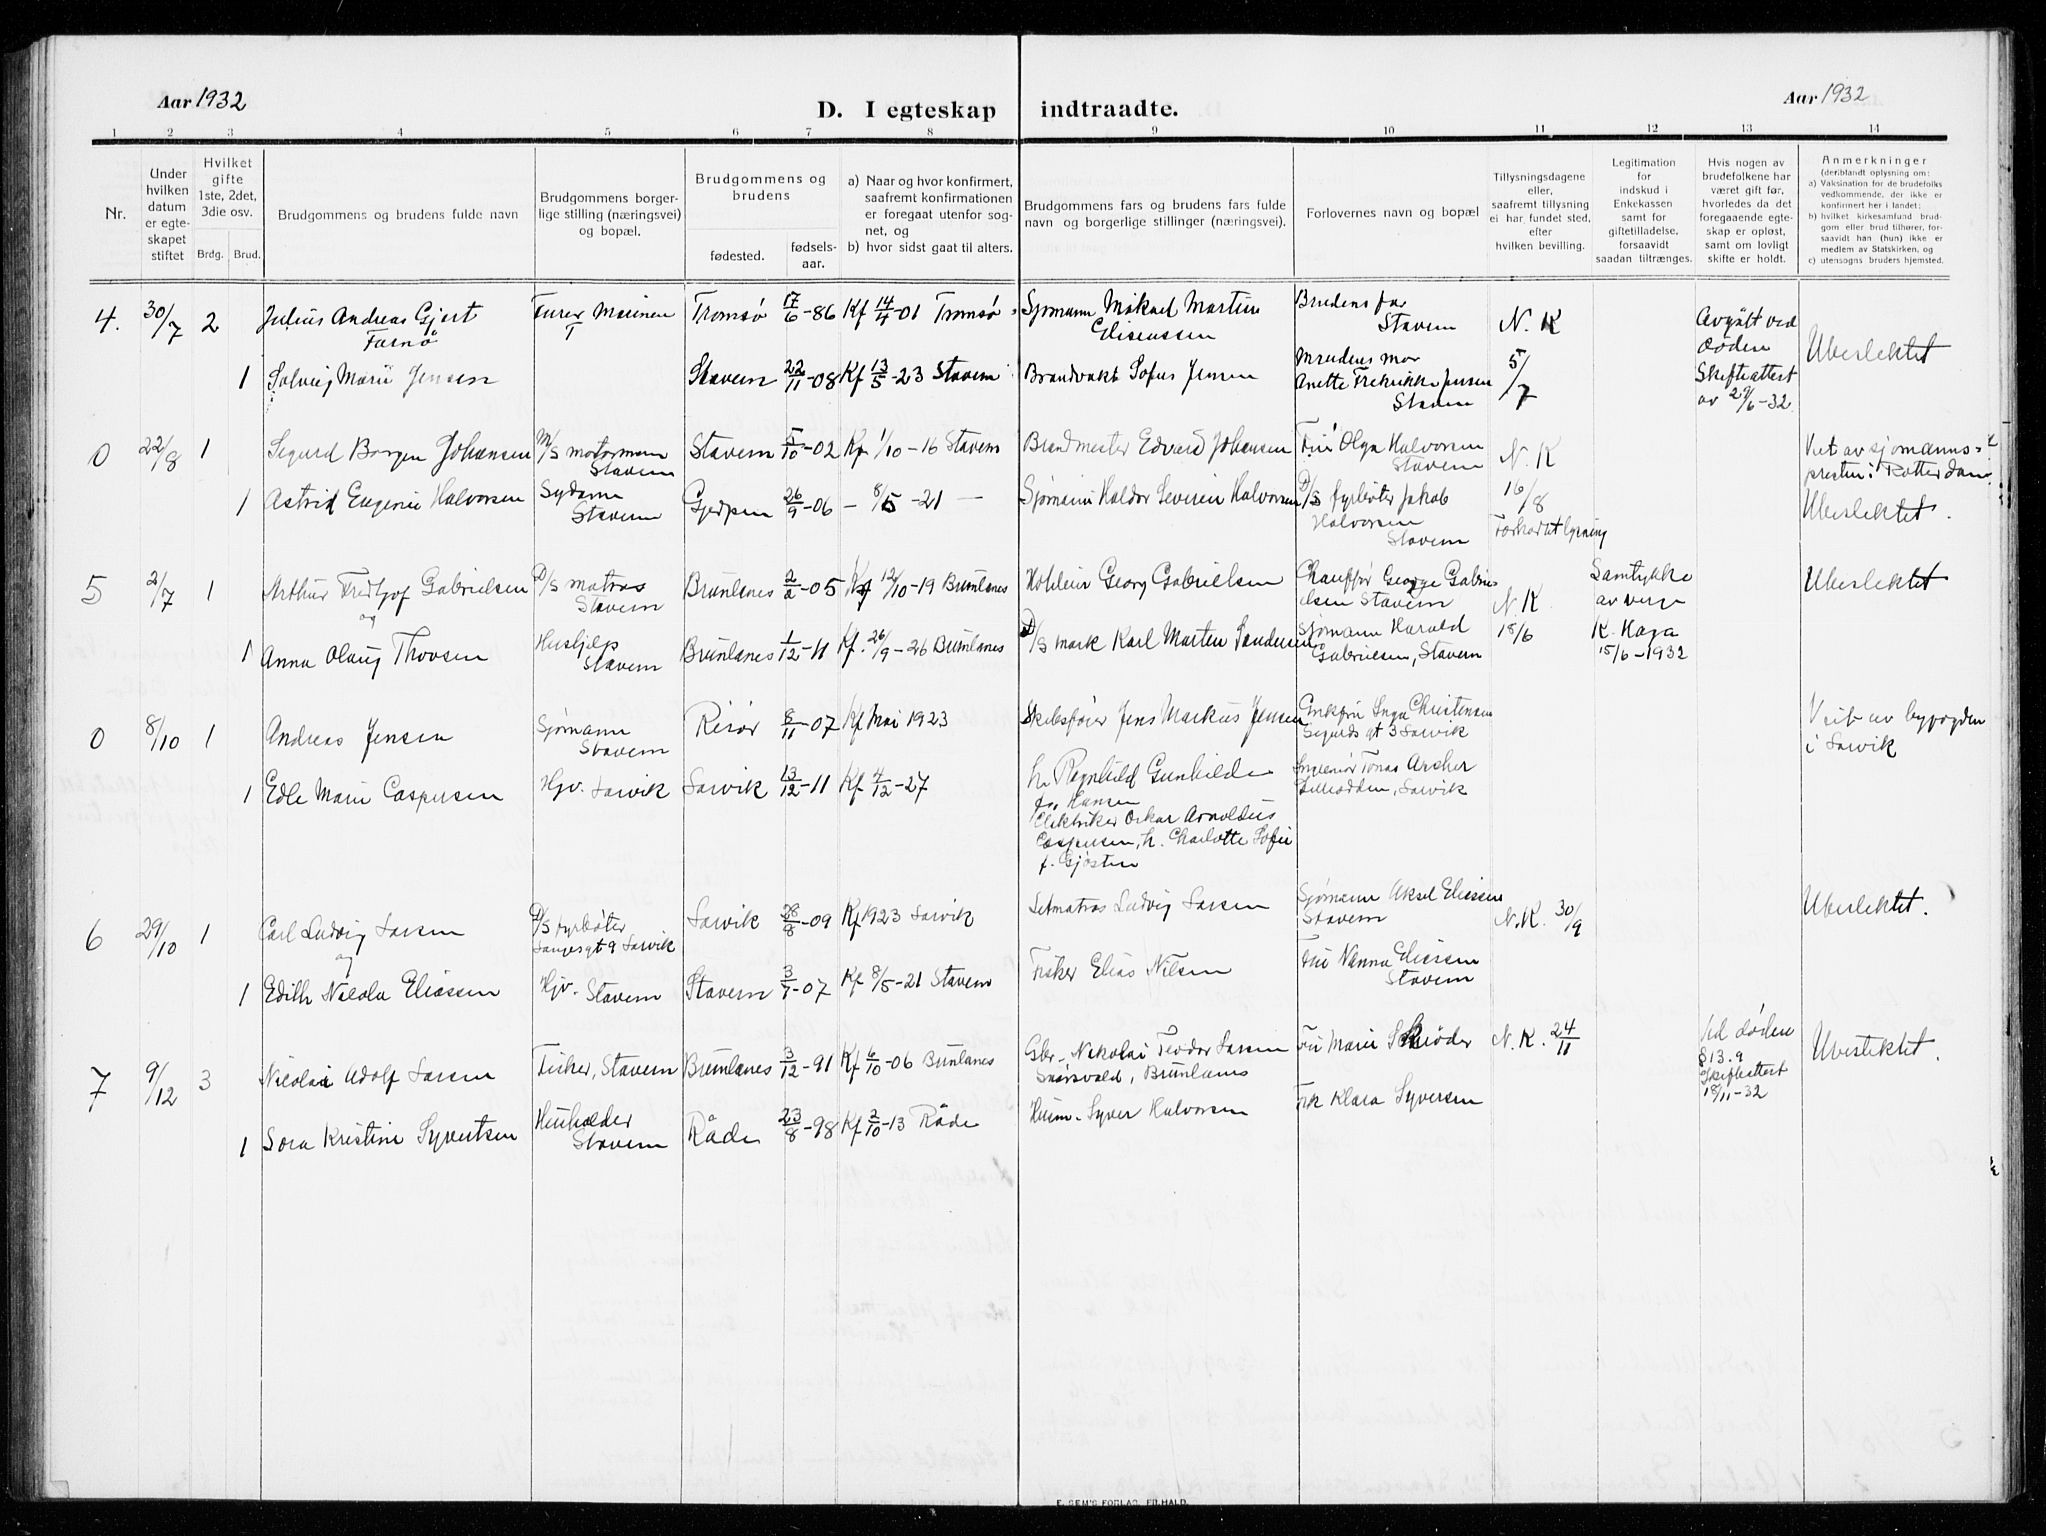 Aar 1932
D. I egteskap indtraadte.
Aar 1932
1 2 3 4 5 6 7 8 9 10 11 12 13 14
Nr.
Under hvilken datum er egteskapet stiftet
Hvilket gifte 1ste, 2det, 3die osv.
Brdg. Brud.
Brudgommens og brudens fulde navn
Brudgommens borgerlige stilling (næringsvei) og bopæl.
Brudgommens og brudens
fødested.
fødselsaar.
a) Naar og hvor konfirmert, saafremt konfirmationen er foregaat utenfor sognet, og
b) hvor sidst gaat til alters.
Brudgommens fars og brudens fars fulde navn og borgerlige stillinger (næringsvei).
Forlovernes navn og bopæl
Tillysningsdagene eller, saafremt tillysning ei har fundet sted, efter hvilken bevilling.
Legitimation for indskud i Enkekassen samt for giftetilladelse, forsaavidt saadan tiltrænges.
Hvis nogen av brudefolkene har været gift før, hvorledes da det foregaaende egteskap er opløst, samt om lovligt skifte er holdt.
Anmerkninger
(deriblandt oplysning om:
a) Vaksination for de brudefolks vedkommende, der ikke er konfirmert her i landet;
b) hvilket kirkesamfund brudgom eller brud tilhører, forsaavidt han (hun) ikke er medlem av Statskirken, og
c) utensogns bruders hjemsted.
4. 30/7 2 Julius Andreas Gjert Marinen Tromsø 17/6-86 Kf 14/4-01 Tromsø Sjømann Mikael Martin Eliseussen Brudens far Stavern N.K Avgått ved døden Ubeslektet
1 Solveig Marie Jensen Stavern 22/11-08 Kf 13/5-23 Stavern Brandvakt Sofus Jensen Brudens mor Anette Fredrikke Jensen Stavern 5/7 Skifteattest av 29/6-32
0 22/8 1 Sigurd Borgen Johansen M/S motormann Stavern Stavern 5/10-02 Kf 1/10-16 Stavern Brandmester Edvard Johansen Fru Olga Halvorsen Stavern N.K Viet av sjømannspresten i Rotterdam
1 Astrid Eugenie Halvorsen Sydame Stavern Gjerpen 26/9-06 — 8/5-21 — Sjømann Haldor Severin Halvorsen D/S fyrbøter Jakob Halvorsen Stavern 16/8 Forkortet lysning Ubeslektet.
5 2/7 1 Arthur Fredtjof Gabrielsen og D/S matros Stavern Brunlanes 2/2-05 Kf 12/10-19 Brunlanes Georg Gabrielsen Chauffør George Gabrielsen Stavern N.K Samtykke av verge Ubeslektet
1 Anna Olaug Thovsen Hushjelp Stavern Brunlanes 1/12-11 Kf. 26/9-26 Brunlanes D/S mask Karl Marten Sjømann Harald Gabrielsen, Stavern 18/6 K. Haga 15/6-1932
0 8/10 1 Andreas Jensen Sjømann Stavern Risør 8/11-07 Kf Mai 1923 Skibsfører Jens Markus Jensen Enkefru Inga Christensen Sigurds gt 3 Larvik Viet av byfogden i Larvik
1 Edle Marie Caspersen Hjv. Larvik Larvik 13/12-11 Kf 4/12-27 h. Ragnhild Gunhilde f. Hansen Ingeniør Tomas Archer Lilleodden, Larvik
Elektriker Oskar Arnoldus Caspersen, h. Charlotte Sofie f. Gjøsten
6 29/10 1 Carl Ludvig Larsen og D/S fyrbøter Langesgt 9 Larvik Larvik 28/8-09 Kf 1923 Larvik Letmatros Ludvig Larsen Sjømann Aksel Eliassen Stavern N.K. 30/9 Ubeslektet.
1 Edith Nicola Eliassen Hjv. Stavern Stavern 3/7-07 Kf 8/5-21 Stavern Fisker Elias Nilsen Fru Nanna Eliassen Stavern
7 9/12 3 Nicolai Adolf Larsen Fisker, Stavern Brunlanes 3/12-91 Kf 6/10-06 Brunlanes Gbr. Nikolai Teodor Larsen Brunlanes Fru Marie Schrøder N.K. 24/11 Ved døden § 13.9 Skifteattest 18/11-32 Ubeslektet.
1 Sora Kristine Syvertsen Husholder Stavern Råde 23/8-98 Kf 2/10-13 Råde Husm. Syver Halvorsen Frk Klara Syversen
E. SEM'S FORLAG, FR.HALD.